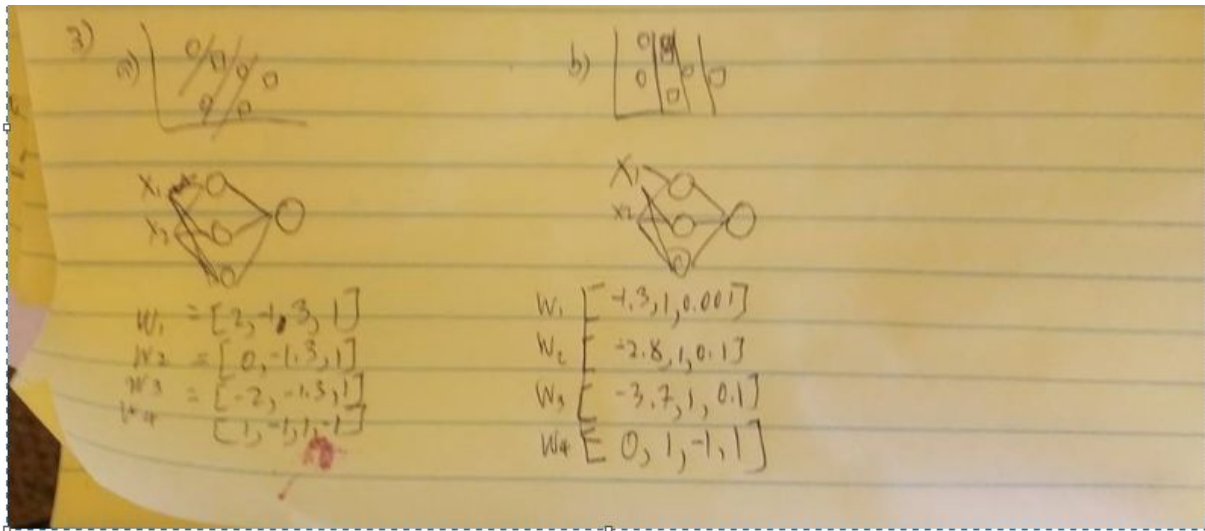 3)
a)
b)
X₁
X₂
X₁
X₂
W₁ = [2, -1.3, 1]
W₂ = [0, -1.3, 1]
W₃ = [-2, -1.3, 1]
W₄ [1, -1, 1, -1]
W₁ [-1.3, 1, 0.001]
W₂ [-2.8, 1, 0.1]
W₃ [-3.7, 1, 0.1]
W₄ [0, 1, -1, 1]